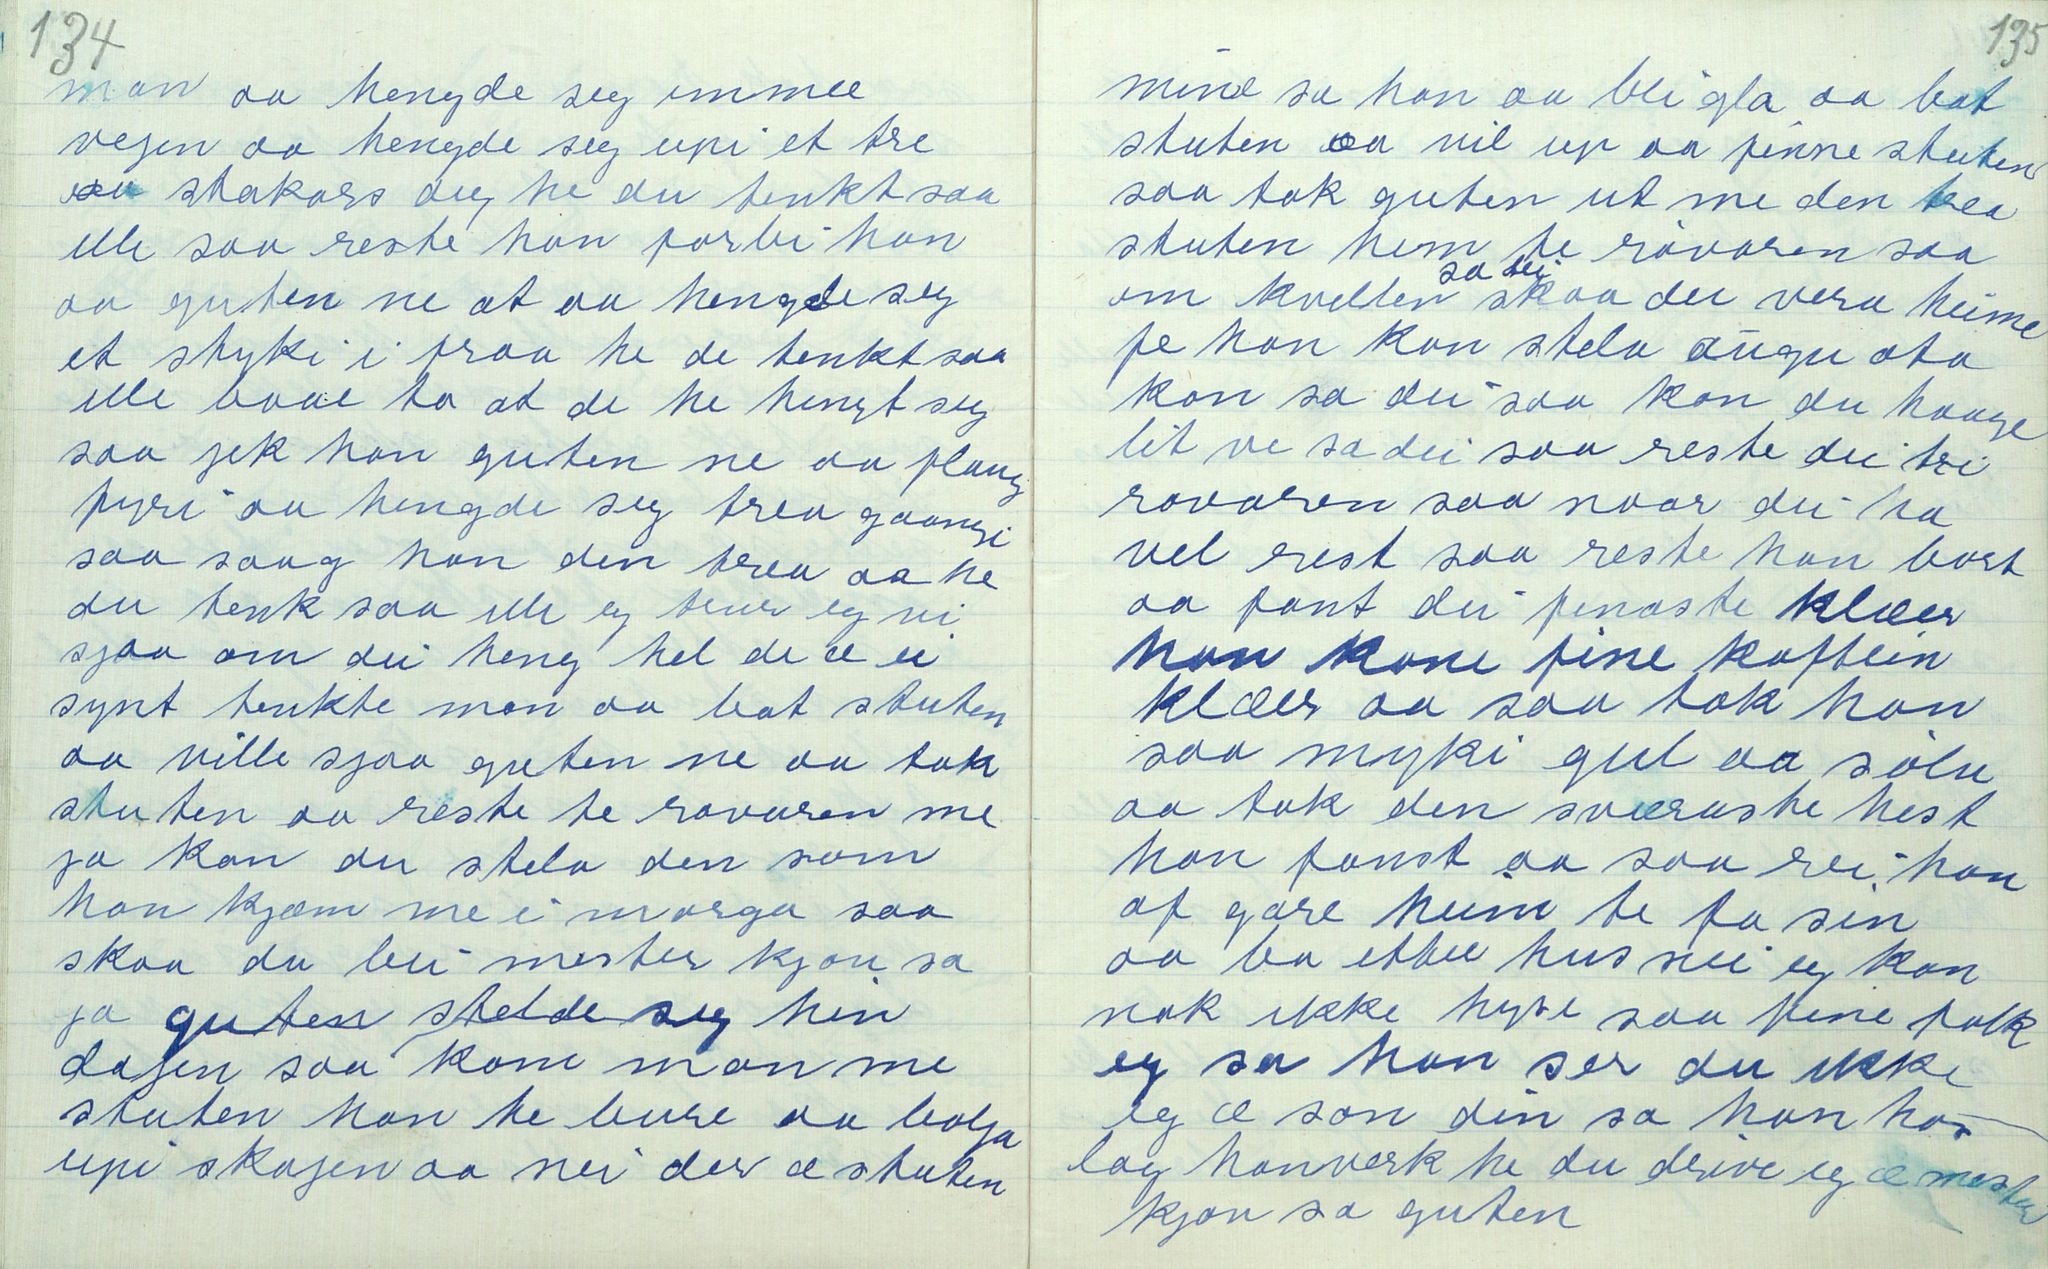 134
man aa hengde seg immee
vegen aa hengde seg upi et tre
aa stakars deg he du tenkt saa
ille saa reste han forbi han
aa guten ne at aa hengde seg
et styki i fraa he de tenkt saa
ille baae to at de he hengt seg
saa jek han guten ne aa flaug
fyri aa hengde seg trea gaangi
saa saag han den trea aa he
du tenk saa ille eg trur eg vi
sjaa om dei heng hel de æ ei
synt tenkte man aa bat stuten
aa ville sjaa guten ne aa tok
stuten aa reste te røvaren me
ja kan du stela den som
han kjem me i morga saa
skaa du bli mester kjøu sa
ja guten stelde seg hin
dagen saa kom man me
stuten han he bure aa bølja
upi skogen aa nei der æ stuten
135
mine sa han aa blei gla aa bat
stuten aa vil up aa finne stuten
saa tok guten ut me den trea
stuten hem te røvaren saa
om kvelden sa dei skaa dei vera heime
fe han kan stela augu ota
kon sa dei saa kan du haage
lit ve sa dei saa reste dei tri
røvaren saa naar dei va
vel rest saa reste han bort
aa fant dei finaste klæer
han kone fine kaftein
klæer aa saa tok han
saa myki gul aa sølv
aa tok den sværaste hest
han fanst aa saa rei han
af gare heim te fa sin
aa ba ettee hus nei eg kan
nok ikke hyse saa fine folk
eg sa han ser du ikke
eg æ son din sa han ho
lag hanverk he du drive eg æ mester
kjøu sa guten